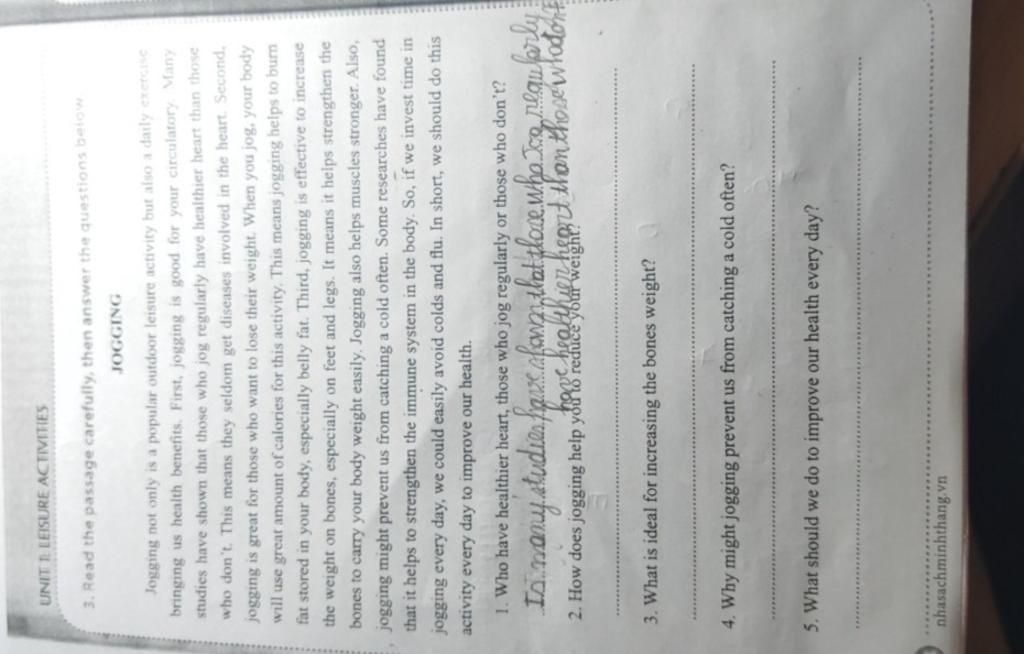 UNIT 1: LEISURE ACTIVITIES
3. Read the passage carefully, then answer the questions below
JOGGING
Jogging not only is a popular outdoor leisure activity but also a daily exercise
bringing us health benefits. First, jogging is good for your circulatory. Many
studies have shown that those who jog regularly have healthier heart than those
who don't. This means they seldom get diseases involved in the heart. Second,
jogging is great for those who want to lose their weight. When you jog, your body
will use great amount of calories for this activity. This means jogging helps to burn
fat stored in your body, especially belly fat. Third, jogging is effective to increase
the weight on bones, especially on feet and legs. It means it helps strengthen the
bones to carry your body weight easily. Jogging also helps muscles stronger. Also,
jogging might prevent us from catching a cold often. Some researches have found
that it helps to strengthen the immune system in the body. So, if we invest time in
jogging every day, we could easily avoid colds and flu. In short, we should do this
activity every day to improve our health.
1. Who have healthier heart, those who jog regularly or those who don't?
Is many studies have shown that those who jog regularly
have healthier heart than those who don't
2. How does jogging help you to reduce your weight?
3. What is ideal for increasing the bones weight?
4. Why might jogging prevent us from catching a cold often?
5. What should we do to improve our health every day?
nhasachminhthang.vn